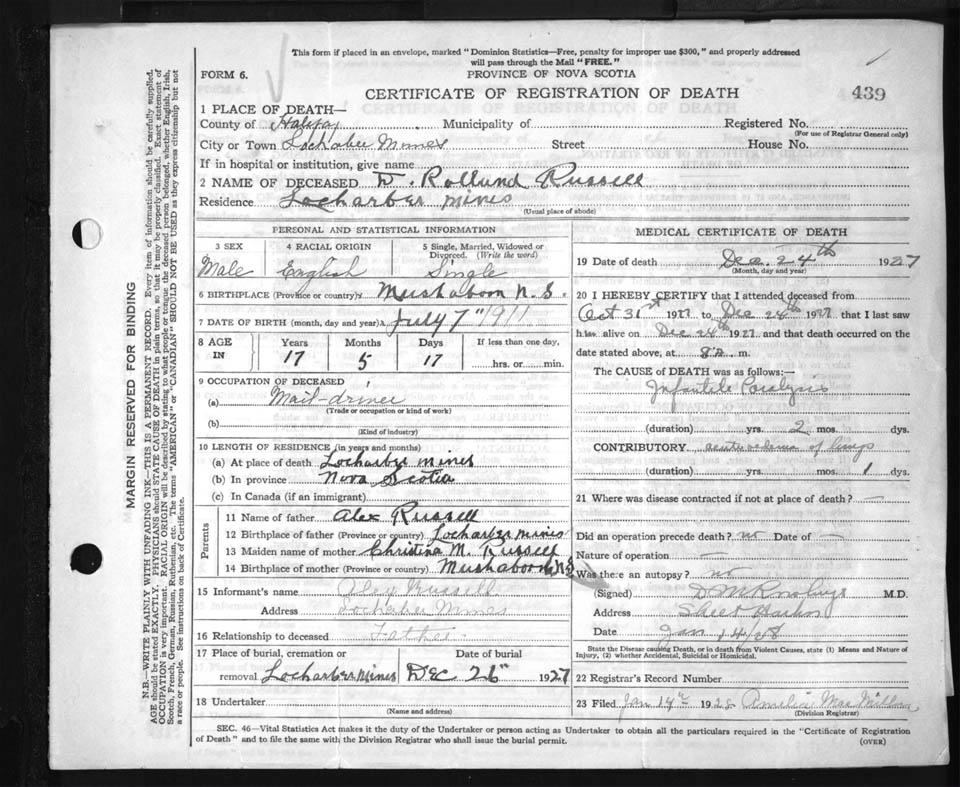 This form if placed in an envelope, marked "Dominion Statistics—Free, penalty for improper use $300," and properly addressed
will pass through the Mail "FREE."
FORM 6.
PROVINCE OF NOVA SCOTIA
CERTIFICATE OF REGISTRATION OF DEATH
439
1 PLACE OF DEATH—
County of Halifax Municipality of Registered No.
(For use of Registrar General only)
City or Town Lochaber Mines Street House No.
If in hospital or institution, give name
2 NAME OF DECEASED D. Rollund Russell
Residence Locharber mines
(Usual place of abode)
PERSONAL AND STATISTICAL INFORMATION
3 SEX 4 RACIAL ORIGIN 5 Single, Married, Widowed or
Divorced. (Write the word)
Male English Single
6 BIRTHPLACE (Province or country) Mushaboon N.S.
7 DATE OF BIRTH (month, day and year) July 7" 1911
8 AGE IN Years Months Days If less than one day,
17 5 17 hrs. or min.
9 OCCUPATION OF DECEASED
(a) Mail-driver
(Trade or occupation or kind of work)
(b)
(Kind of industry)
10 LENGTH OF RESIDENCE (in years and months)
(a) At place of death Locharber mines
(b) In province Nova Scotia
(c) In Canada (if an immigrant)
Parents
11 Name of father Alex Russell
12 Birthplace of father (Province or country) Locharber mines
13 Maiden name of mother Christina M. Russell
14 Birthplace of mother (Province or country) Mushaboon N.S
15 Informant's name Alex Russell
Address Lochaber Mines
16 Relationship to deceased Father
17 Place of burial, cremation or Date of burial
removal Locharber mines Dec 26" 1927
18 Undertaker
(Name and address)
MEDICAL CERTIFICATE OF DEATH
19 Date of death Dec. 24th 1927
(Month, day and year)
20 I HEREBY CERTIFY that I attended deceased from
Oct 31st 1927 to Dec 24th 1927 that I last saw
him alive on Dec 24th 1927 and that death occurred on the
date stated above, at m.
The CAUSE of DEATH was as follows:—
Infantile Paralysis
(duration) yrs. 2 mos. dys.
CONTRIBUTORY. acute oedema of lungs
(duration) yrs. mos. 1 dys.
21 Where was disease contracted if not at place of death? —
Did an operation precede death? no Date of —
Nature of operation —
Was there an autopsy? no
(Signed) M.D.
Address Sheet Harbor
Date Jan 14/28
State the Disease causing Death, or in death from Violent Causes, state (1) Means and Nature of
Injury, (2) whether Accidental, Suicidal or Homicidal.
22 Registrar's Record Number
23 Filed Jan 14th 1928
(Division Registrar)
SEC. 46—Vital Statistics Act makes it the duty of the Undertaker or person acting as Undertaker to obtain all the particulars required in the "Certificate of Registration
of Death" and to file the same with the Division Registrar who shall issue the burial permit.
(OVER)
MARGIN RESERVED FOR BINDING
N.B.—WRITE PLAINLY WITH UNFADING INK—THIS IS A PERMANENT RECORD. Every item of information should be carefully supplied.
AGE should be stated EXACTLY. PHYSICIANS should STATE CAUSE OF DEATH in plain terms, so that it may be properly classified. Exact statement of
OCCUPATION is very important. RACIAL ORIGIN will be described by stating to what people or tongue the deceased person belonged, whether English, Irish,
Scotch, French, German, Russian, Ruthenian, etc. The terms "AMERICAN" or "CANADIAN" SHOULD NOT BE USED as they express citizenship but not
a race or people. See instructions on back of Certificate.